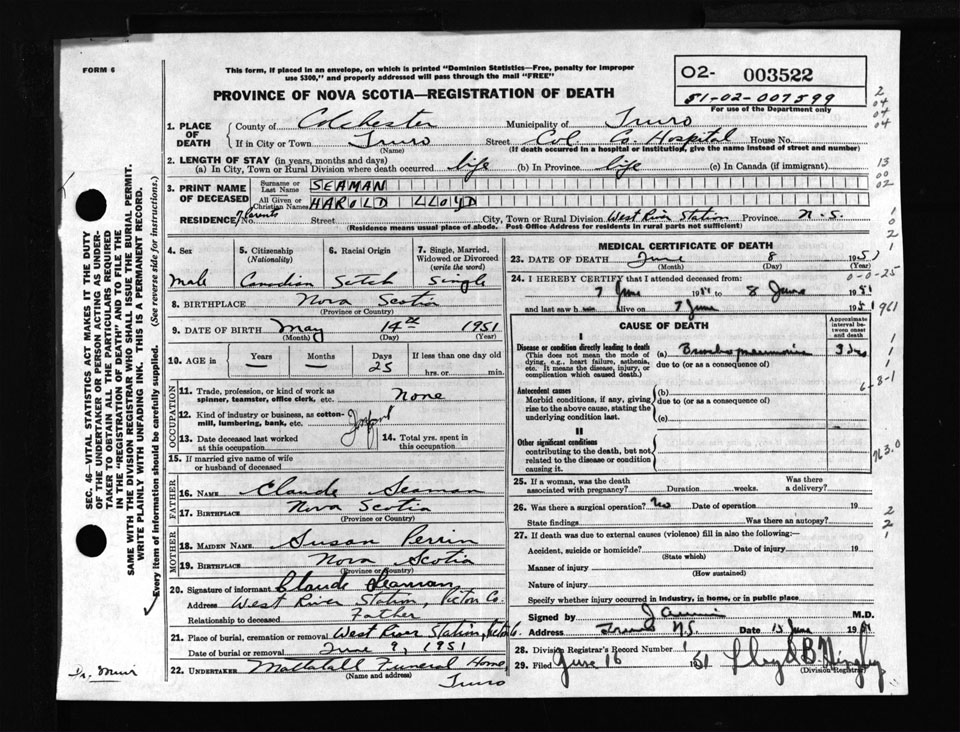 FORM 6
This form, if placed in an envelope, on which is printed "Dominion Statistics—Free, penalty for improper
use $300," and properly addressed will pass through the mail "FREE"
PROVINCE OF NOVA SCOTIA—REGISTRATION OF DEATH
02- 003522
51-02-007599
For use of the Department only
2
04
04
04
13
00
02
1
0
2
1
0-0-25
961
6-8-1
763.0
2
2
1
SEC. 46—VITAL STATISTICS ACT MAKES IT THE DUTY
OF THE UNDERTAKER OR PERSON ACTING AS UNDER-
TAKER TO OBTAIN ALL THE PARTICULARS REQUIRED
IN THE "REGISTRATION OF DEATH" AND TO FILE THE
SAME WITH THE DIVISION REGISTRAR WHO SHALL ISSUE THE BURIAL PERMIT.
WRITE PLAINLY WITH UNFADING INK. THIS IS A PERMANENT RECORD.
Every item of information should be carefully supplied. (See reverse side for instructions.)
1. PLACE OF DEATH
County of Colchester Municipality of Truro
If in City or Town Truro Street Col. Co. Hospital House No.
(Name) (If death occurred in a hospital or institution, give the name instead of street and number)
2. LENGTH OF STAY (in years, months and days)
(a) In City, Town or Rural Division where death occurred life (b) In Province life (c) In Canada (if immigrant)
3. PRINT NAME OF DECEASED
Surname or Last Name SEAMAN
All Given or Christian Names HAROLD LLOYD
RESIDENCE Parents Street City, Town or Rural Division West River Station Province N.S.
(Residence means usual place of abode. Post Office Address for residents in rural parts not sufficient)
4. Sex 5. Citizenship (Nationality) 6. Racial Origin 7. Single, Married, Widowed or Divorced (write the word)
Male Canadian Scotch Single
8. BIRTHPLACE Nova Scotia
(Province or Country)
9. DATE OF BIRTH May 14th 1951
(Month) (Day) (Year)
10. AGE in Years Months Days If less than one day old
— — 25 hrs. or min.
OCCUPATION
11. Trade, profession, or kind of work as
spinner, teamster, office clerk, etc. None
12. Kind of industry or business, as cotton-
mill, lumbering, bank, etc.
13. Date deceased last worked at this occupation
14. Total yrs. spent in this occupation
15. If married give name of wife
or husband of deceased
FATHER
16. NAME Claude Seaman
17. BIRTHPLACE Nova Scotia
(Province or Country)
MOTHER
18. MAIDEN NAME Susan Perrin
19. BIRTHPLACE Nova Scotia
(Province or Country)
20. Signature of informant Claude Seaman
Address West River Station, Pictou Co.
Relationship to deceased Father
21. Place of burial, cremation or removal West River Station, Pictou Co.
Date of burial or removal June 9, 1951
22. UNDERTAKER Mattatall Funeral Home,
(Name and address) Truro
Dr. Muir
MEDICAL CERTIFICATE OF DEATH
23. DATE OF DEATH June 8 1951
(Month) (Day) (Year)
24. I HEREBY CERTIFY that I attended deceased from
7 June 1951 to 8 June 1951
and last saw h alive on 7 June 1951
CAUSE OF DEATH
Approximate interval between onset and death
I
Disease or condition directly leading to death
(This does not mean the mode of
dying, e.g., heart failure, asthenia,
etc. It means the disease, injury, or
complication which caused death.)
(a) Bronchopneumonia
due to (or as a consequence of)
Antecedent causes
Morbid conditions, if any, giving
rise to the above cause, stating the
underlying condition last.
(b)
due to (or as a consequence of)
(c)
II
Other significant conditions
contributing to the death, but not
related to the disease or condition
causing it.
25. If a woman, was the death
associated with pregnancy? Duration weeks. Was there a delivery?
26. Was there a surgical operation? No Date of operation 19
State findings Was there an autopsy?
27. If death was due to external causes (violence) fill in also the following:
Accident, suicide or homicide? Date of injury 19
(State which)
Manner of injury
(How sustained)
Nature of injury
Specify whether injury occurred in industry, in home, or in public place
Signed by M.D.
Address Truro N.S. Date 15 June 1951
28. Division Registrar's Record Number
29. Filed June 16 1951
(Division Registrar)